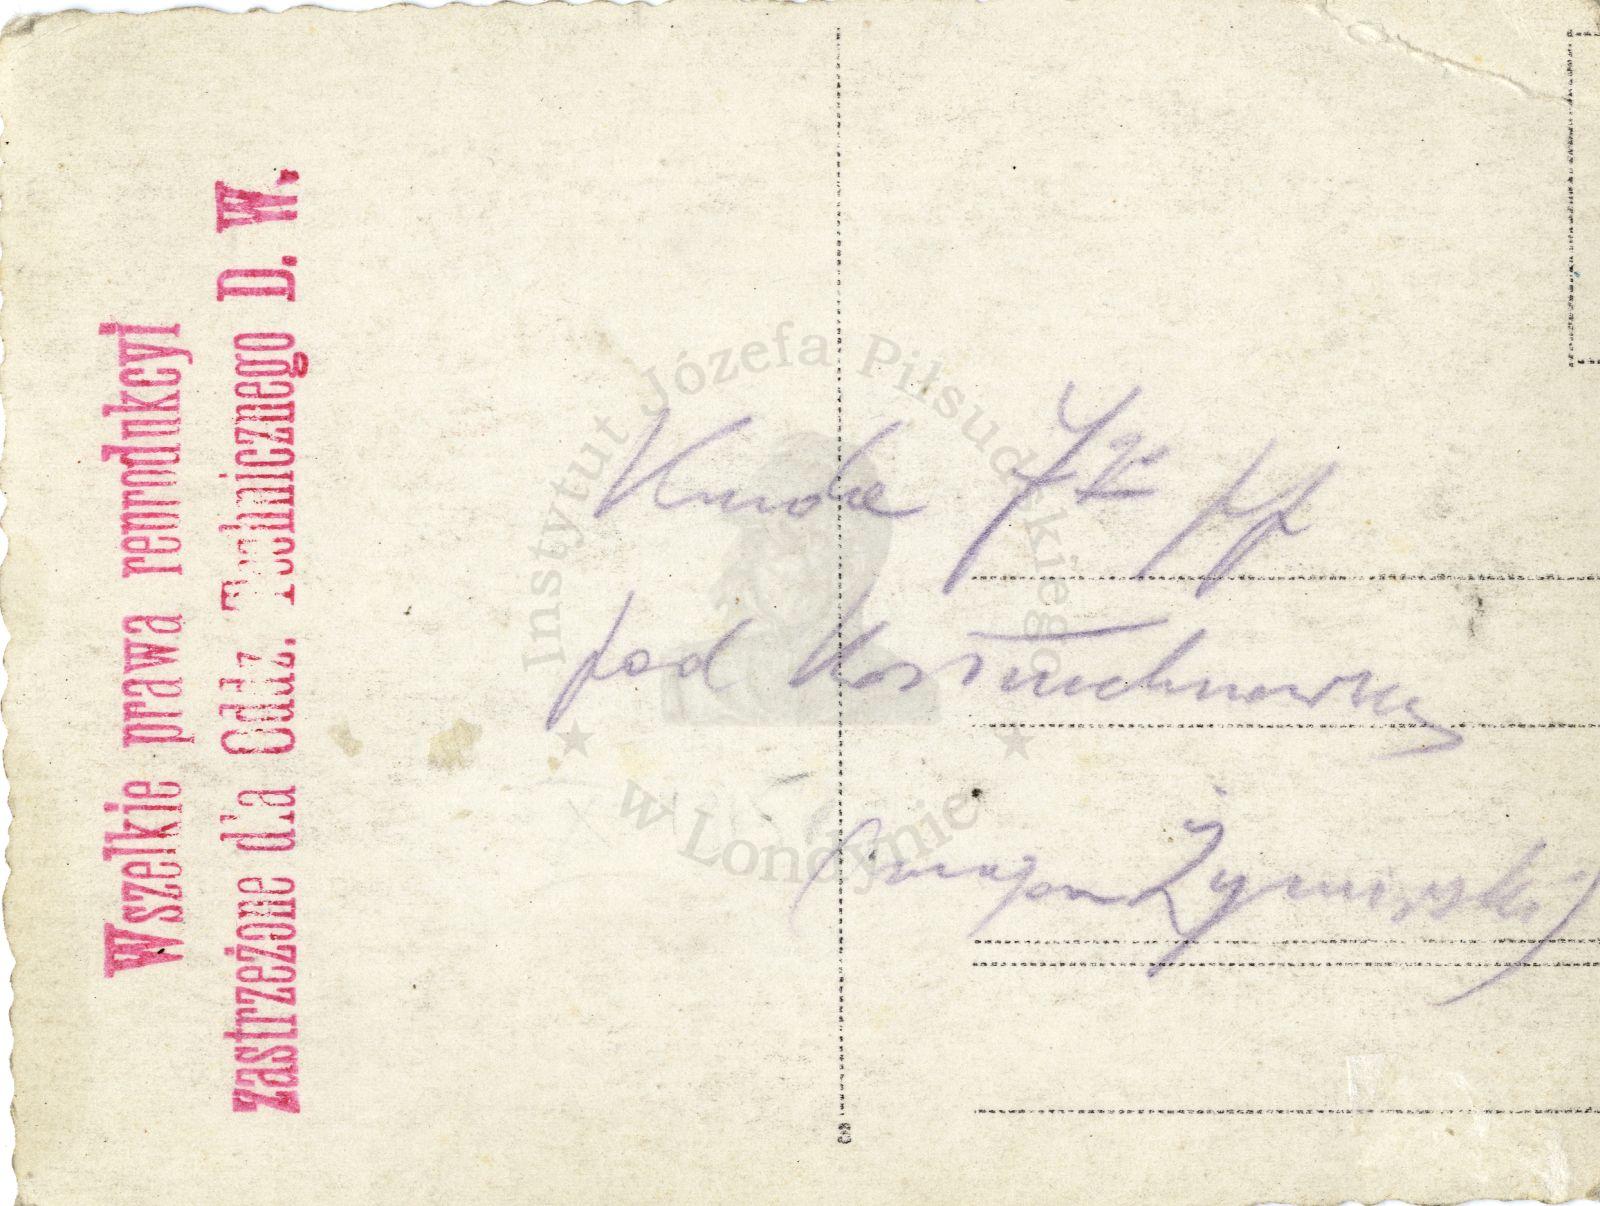 Wszelkie prawa reprodukcyi
zastrzeżone dla Oddz. Technicznego D. W.
Instytut Józefa Piłsudskiego
w Londynie
7go pp
pod Kostiuchnowką
(major Żymirski)
63